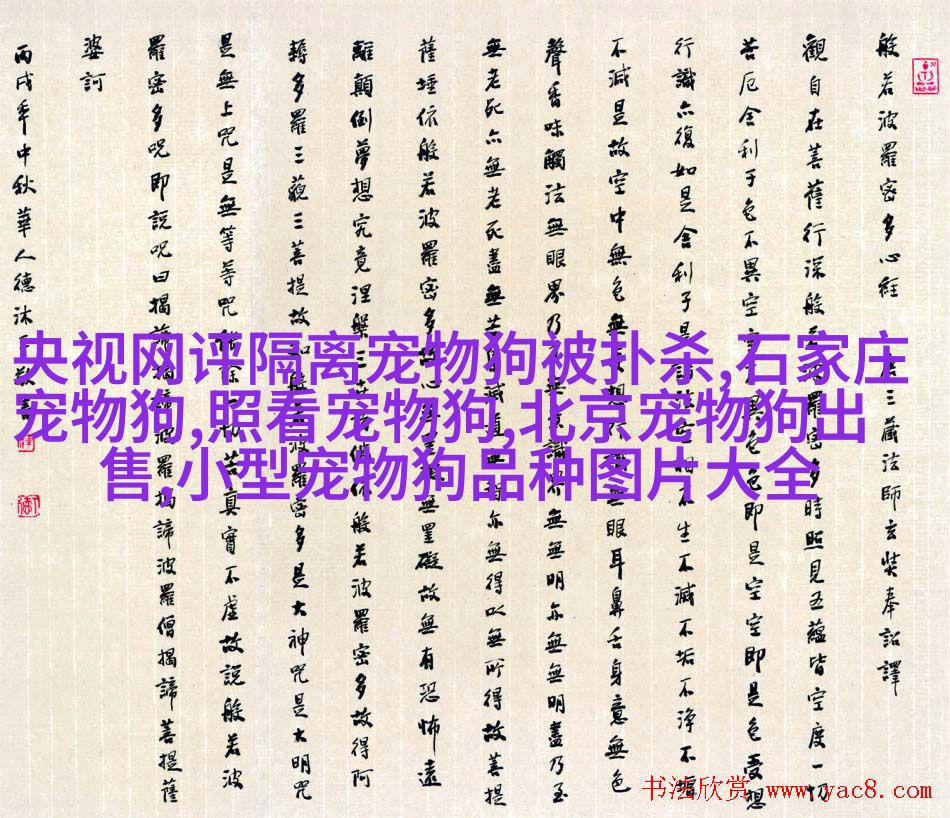 央视网评隔离宠物狗被扑杀,石家庄
宠物狗,照看宠物狗,北京宠物狗出
售,小型宠物狗品种图片大全
般若波羅密多心經 唐三藏法師玄奘奉詔譯
觀自在菩薩行深般若波羅密多時照見五蘊皆空度一切
苦厄舍利子色不異空空不異色色即是空空即是色受想
行識亦復如是舍利子是諸法空相不生不滅不垢不淨不增
不減是故空中無色無受想行識無眼耳鼻舌身意無色
聲香味觸法無眼界乃至無意識界無無明亦無無明盡乃至
無老死亦無老死盡無苦集滅道無智亦無得以無所得故菩提
薩埵依般若波羅密多故心無罣礙無罣礙故無有恐怖遠
離顛倒夢想究竟涅槃三世諸佛依般若波羅密多故得阿
耨多羅三藐三菩提故知般若波羅密多是大神咒是大明咒
是無上咒是無等等咒能除一切苦真實不虛故說般若波
羅密多咒即說咒曰揭諦揭諦波羅揭諦波羅僧揭諦菩提薩
婆訶
丙戌年中秋華人德沐手敬書
书法欣赏 www.yac8.com